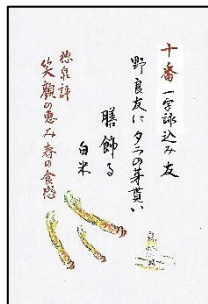 十番 一字詠込み 友
野良友に タラの芽貰い
膳飾る
白米
笑顔の恵み 春の食感